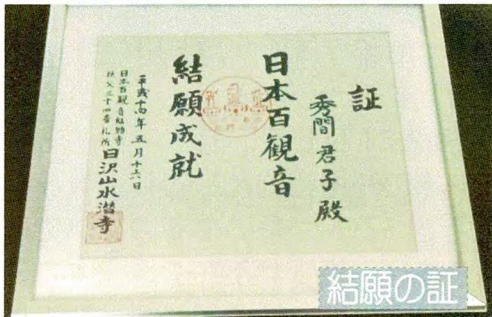 証
秀間君子殿
日本百観音
結願成就
平成十年五月十六日
日本百観音結願寺
秩父三十四番札所
日沢山水潜寺
結願の証